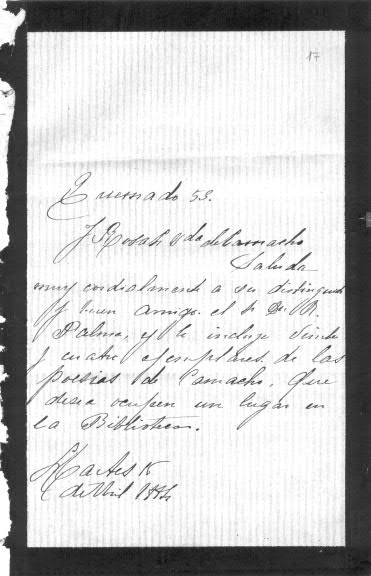 17
Quemado 53.
J. Rosas Vda de Camacho
Saluda
muy cordialmente a su distinguido
y buen amigo el Sr Dn R.
Palma, y le incluye veinte
y cuatro ejemplares de las
poesías de Camacho, que
desea ocupen un lugar en
la Biblioteca.
Martes 15
de Abril